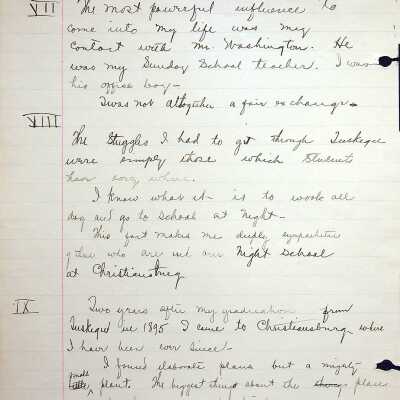 VII The most powerful influence to
come into my life was my
contact with Mr. Washington. He
was my Sunday School teacher. I was
his office boy—
Twas not altogether a fair exchange.
VIII
The Struggles I had to get through Tuskegee
were simply those which Students
have every where.
I know what it is to work all
day and go to School at Night—
This fact makes me deeply sympathetic
who are in our Night School
at Christiansburg
IX Two years after my graduation from
Tuskegee in 1895 I came to Christiansburg where
I have been ever since—
I found elaborate plans but a mighty
small
little plant. The biggest thing about the place